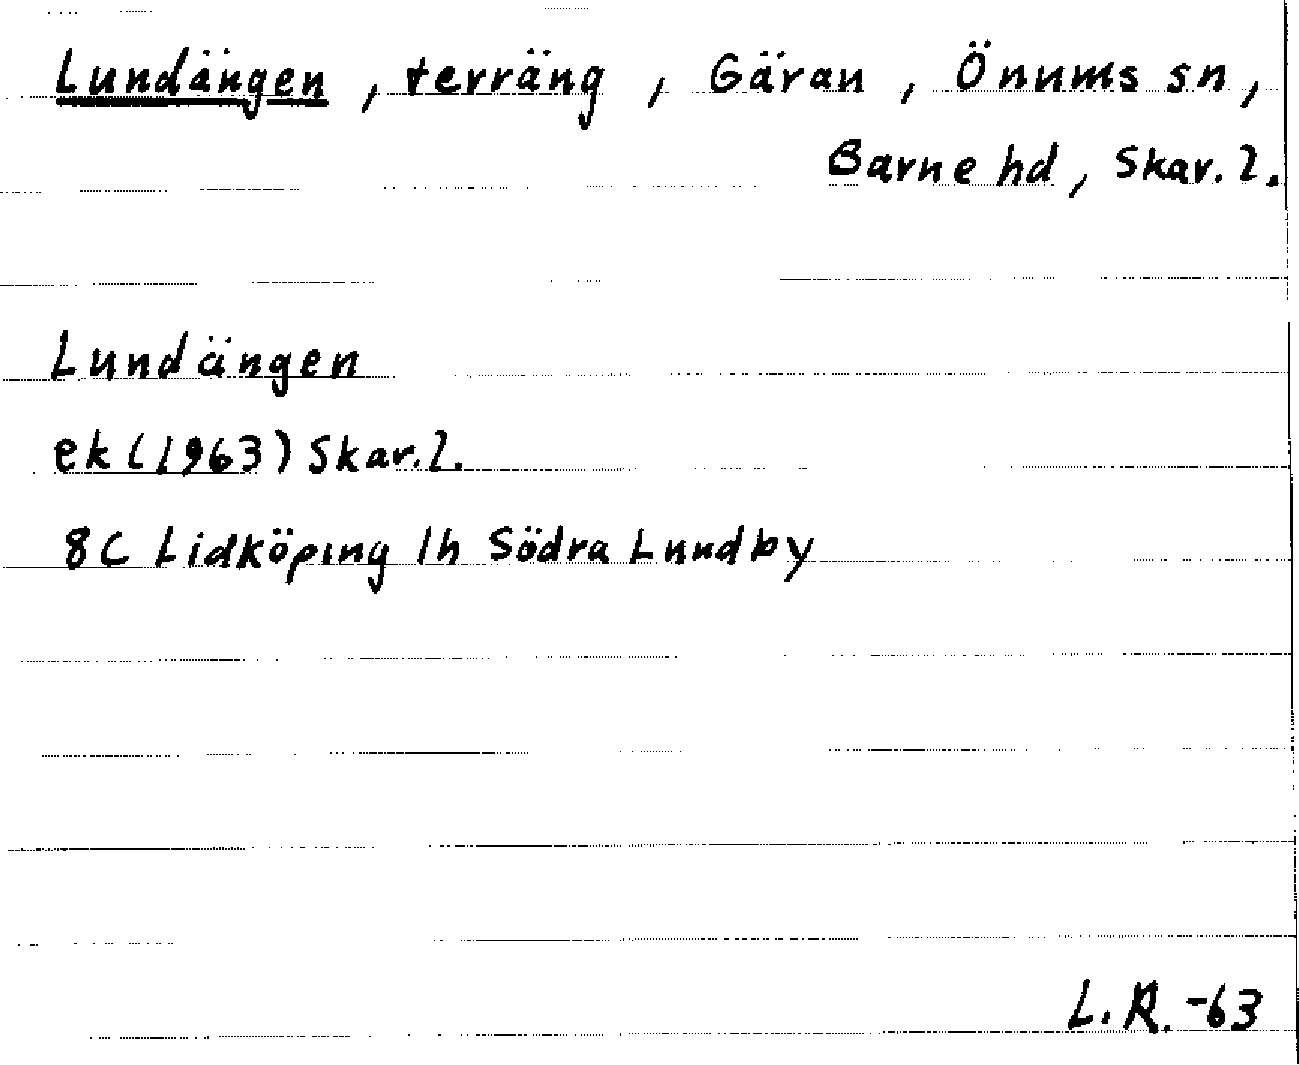 Lundängen, terräng, Gäran, Önums sn,
Barne hd, Skar. l.
Lundängen
ek (1963) Skar. l.
8C Lidköping 1h Södra Lundby
L. R. -63